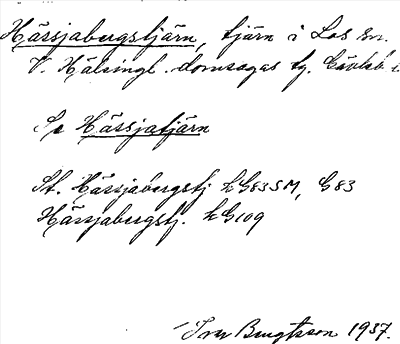 Hässjabergstjärn, tjärn i Los sn.
V. Hälsingl. domsagas tg. Gävleb.
Se Hässjatjärn
St. Hässjabergstj. kG83SM, G83
Hässjabergstj. kG109
Ivar Bengtsson 1937.